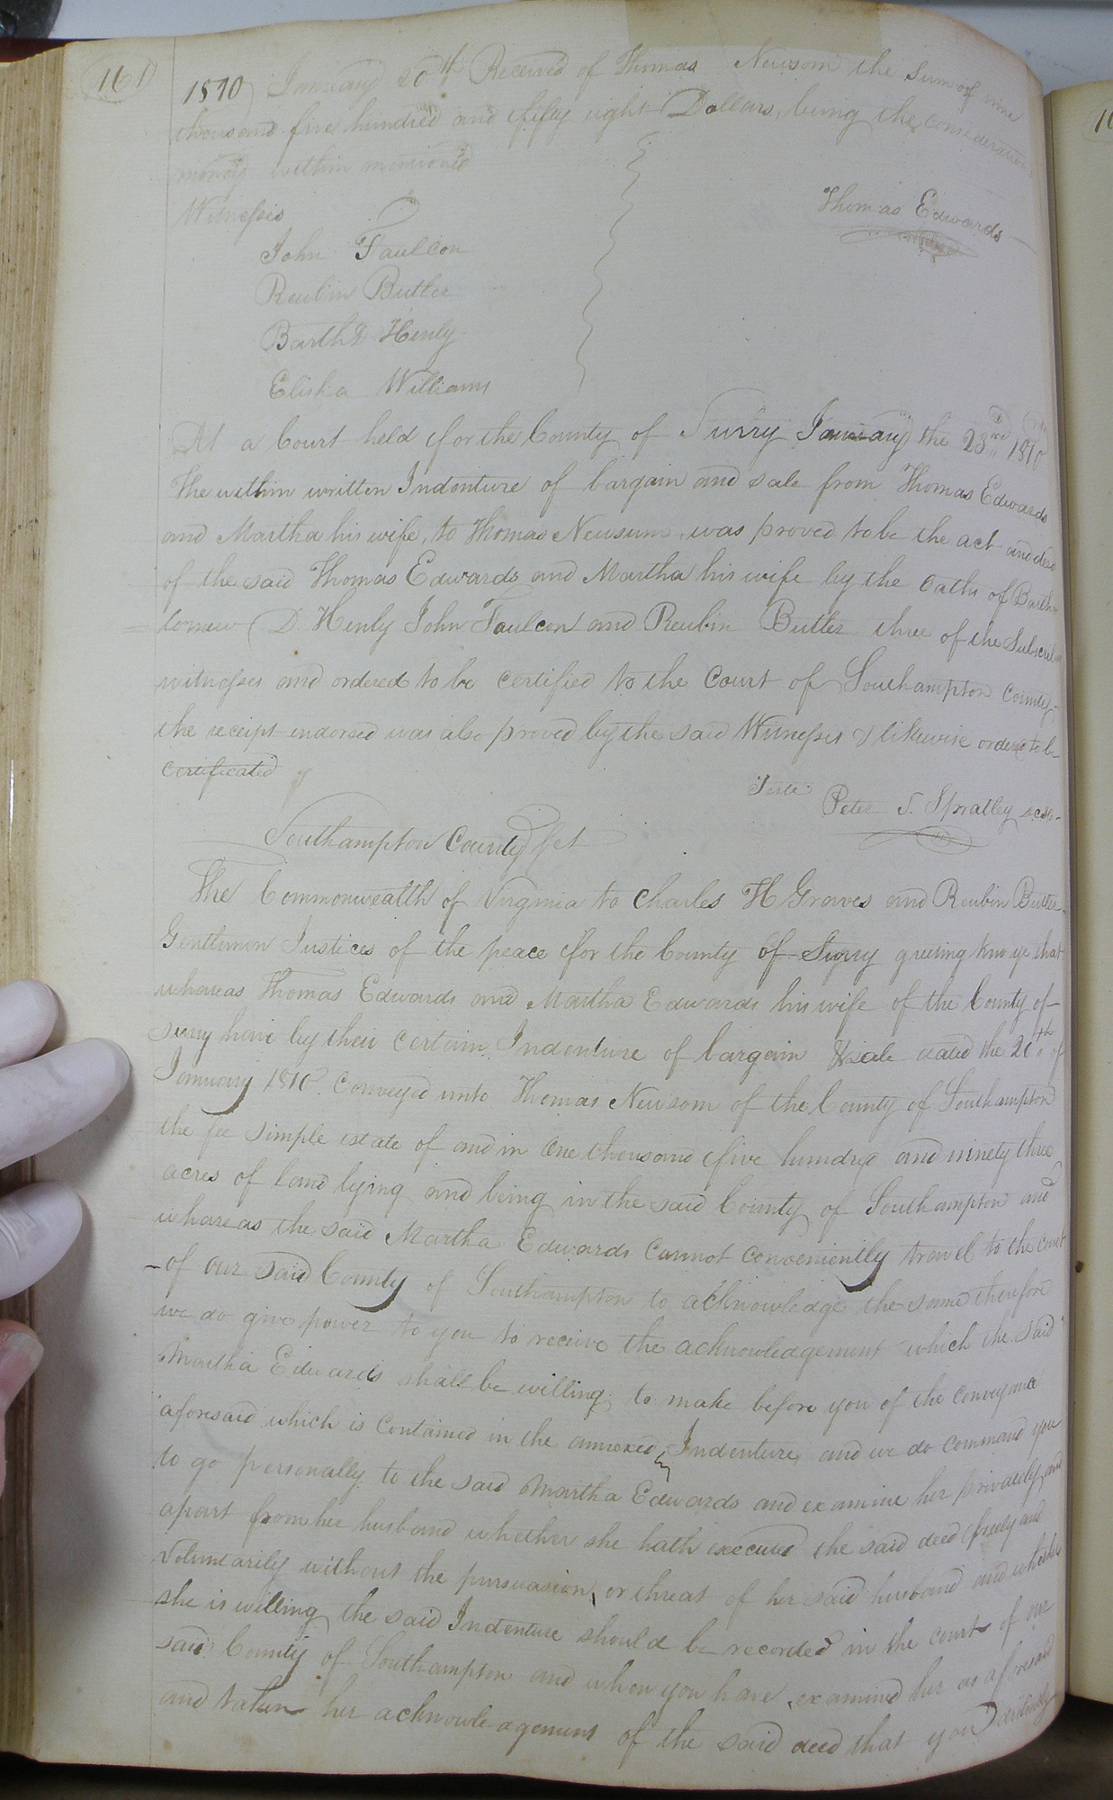 161
1810 January 20th Received of Thomas Newsom the Sum of nine
thousand five hundred and fifty eight Dollars, being the consideration
money within mentioned
Witnesses
Thomas Edwards
John Faulcon
Reubin Butler
Barth D Henly
Elisha Williams
At a Court held for the County of Surry January the 23rd 1810
The within written Indenture of bargain and sale from Thomas Edwards
and Martha his wife, to Thomas Newsum, was proved to be the act and deed
of the said Thomas Edwards and Martha his wife by the oaths of Bartho
lomew D. Henly John Faulcon and Reubin Butler three of the Subscri
witnesses and ordered to be certified to the Court of Southampton County
the receipt endorsed was also proved by the said Witnesses & likewise ordered to be
certificated
Teste Peter T. Spratley
Southampton County Sct
The Commonwealth of Virginia to Charles H Graves and Reubin Butler
Gentlemen Justices of the peace for the County of Surry greeting know ye that
whareas Thomas Edwards and Martha Edwards his wife of the County of
Surry have by their certain Indenture of bargain & sale dated the 20th of
January 1810 Conveyed unto Thomas Newsom of the County of Southampton
the fee simple estate of and in One thousand five hundred and ninety three
acres of land lying and being in the said County of Southampton and
whareas the said Martha Edwards cannot conveniently travel to the court
of our said County of Southampton to acknowledge the same therefore
we do give power to you to receive the acknowledgement which the said
Martha Edwards shall be willing to make before you of the conveyance
aforesaid which is contained in the annexed Indenture and we do command you
to go personally to the said Martha Edwards and examine her privately and
apart from her husband whether she hath executed the said deed freely and
Voluntarily without the pursuasion or threat of her said husband and whether
she is willing the said Indenture should be recorded in the court of our
said County of Southampton and when you have examined her as aforesaid
and taken her acknowledgement of the said deed that you